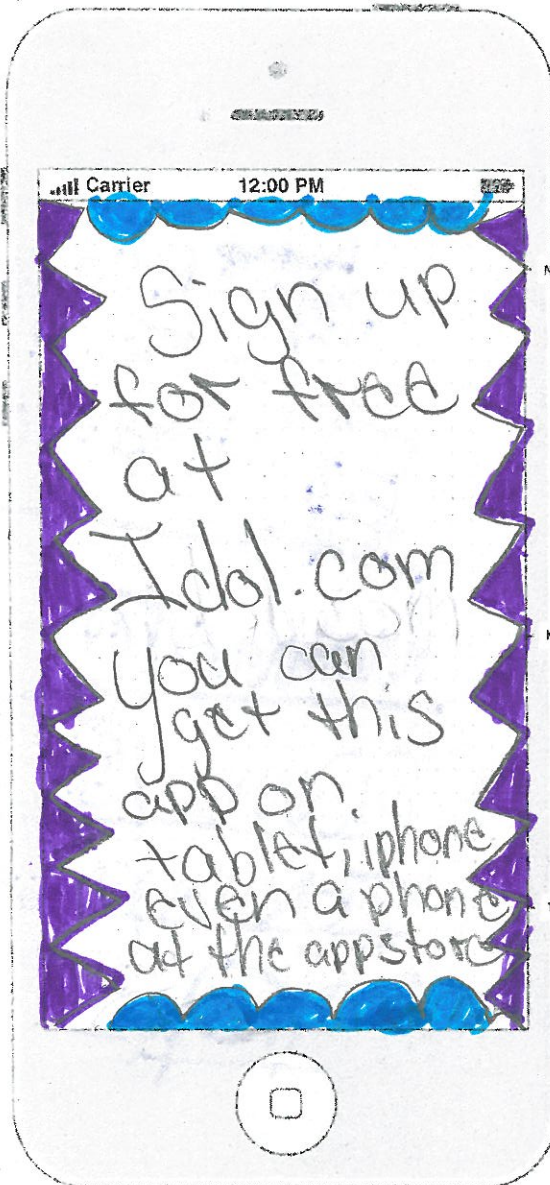 Carrier 12:00 PM
Sign up
for free
at
Idol.com
you can
get this
app on
tablet, iphone
even a phone
at the appstore